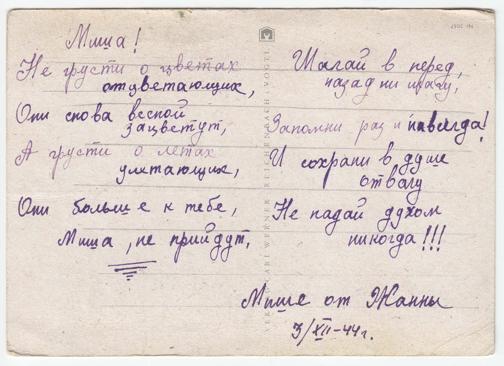 Миша!
Не грусти о цветах
отцветающих,
Они снова весной
зацветут,
А грусти о летах
улетающих,
Они больше к тебе,
Миша, не прийдут.
Шагай в перед,
назад ни шагу,
Запомни раз и навсегда!
И сохрани в душе
отвагу
Не падай духом
никогда!!!
Мише от Жанны
3/XII-44г.